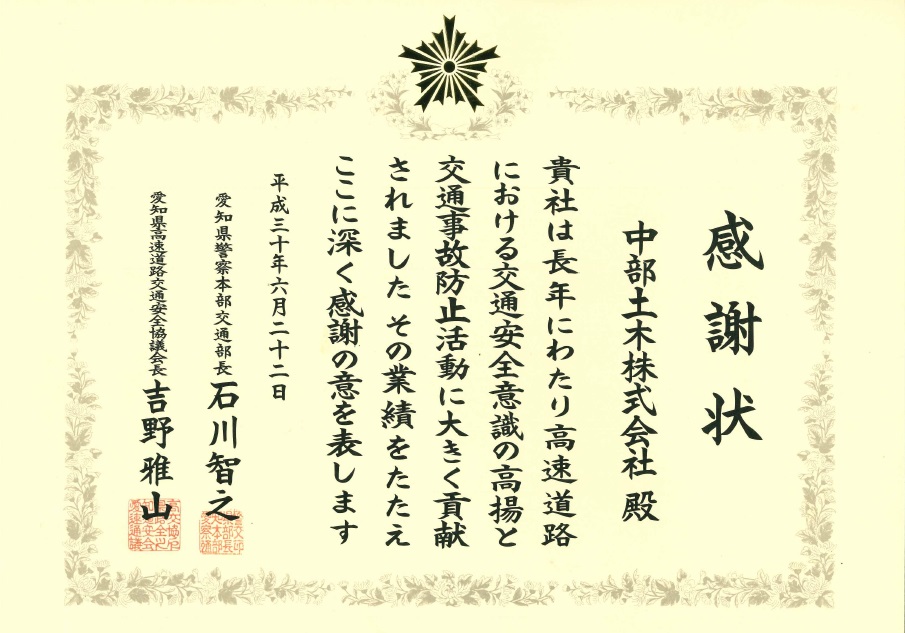 感謝状
中部土木株式会社 殿
貴社は長年にわたり高速道路
における交通安全意識の高揚と
交通事故防止活動に大きく貢献
されました その業績をたたえ
ここに深く感謝の意を表します
平成三十年六月二十二日
愛知県警察本部交通部長 石川智之
愛知県高速道路交通安全協議会長 吉野雅山